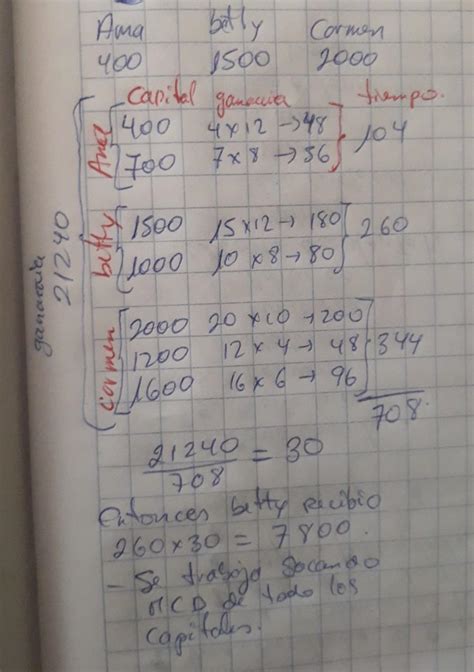 Ama betty Carmen
400 1500 2000
Capital ganancia tiempo.
ganancia 21240
Ama
400 4x12 → 48
700 7x8 → 56
104
betty
1500 15x12 → 180
1000 10x8 → 80
260
Carmen
2000 20x10 → 200
1200 12x4 → 48
1600 16x6 → 96
344
708
21240/708 = 30
Entonces betty recibio
260x30 = 7800.
- Se trabaja sacando
MCD de todo los
Capitales.